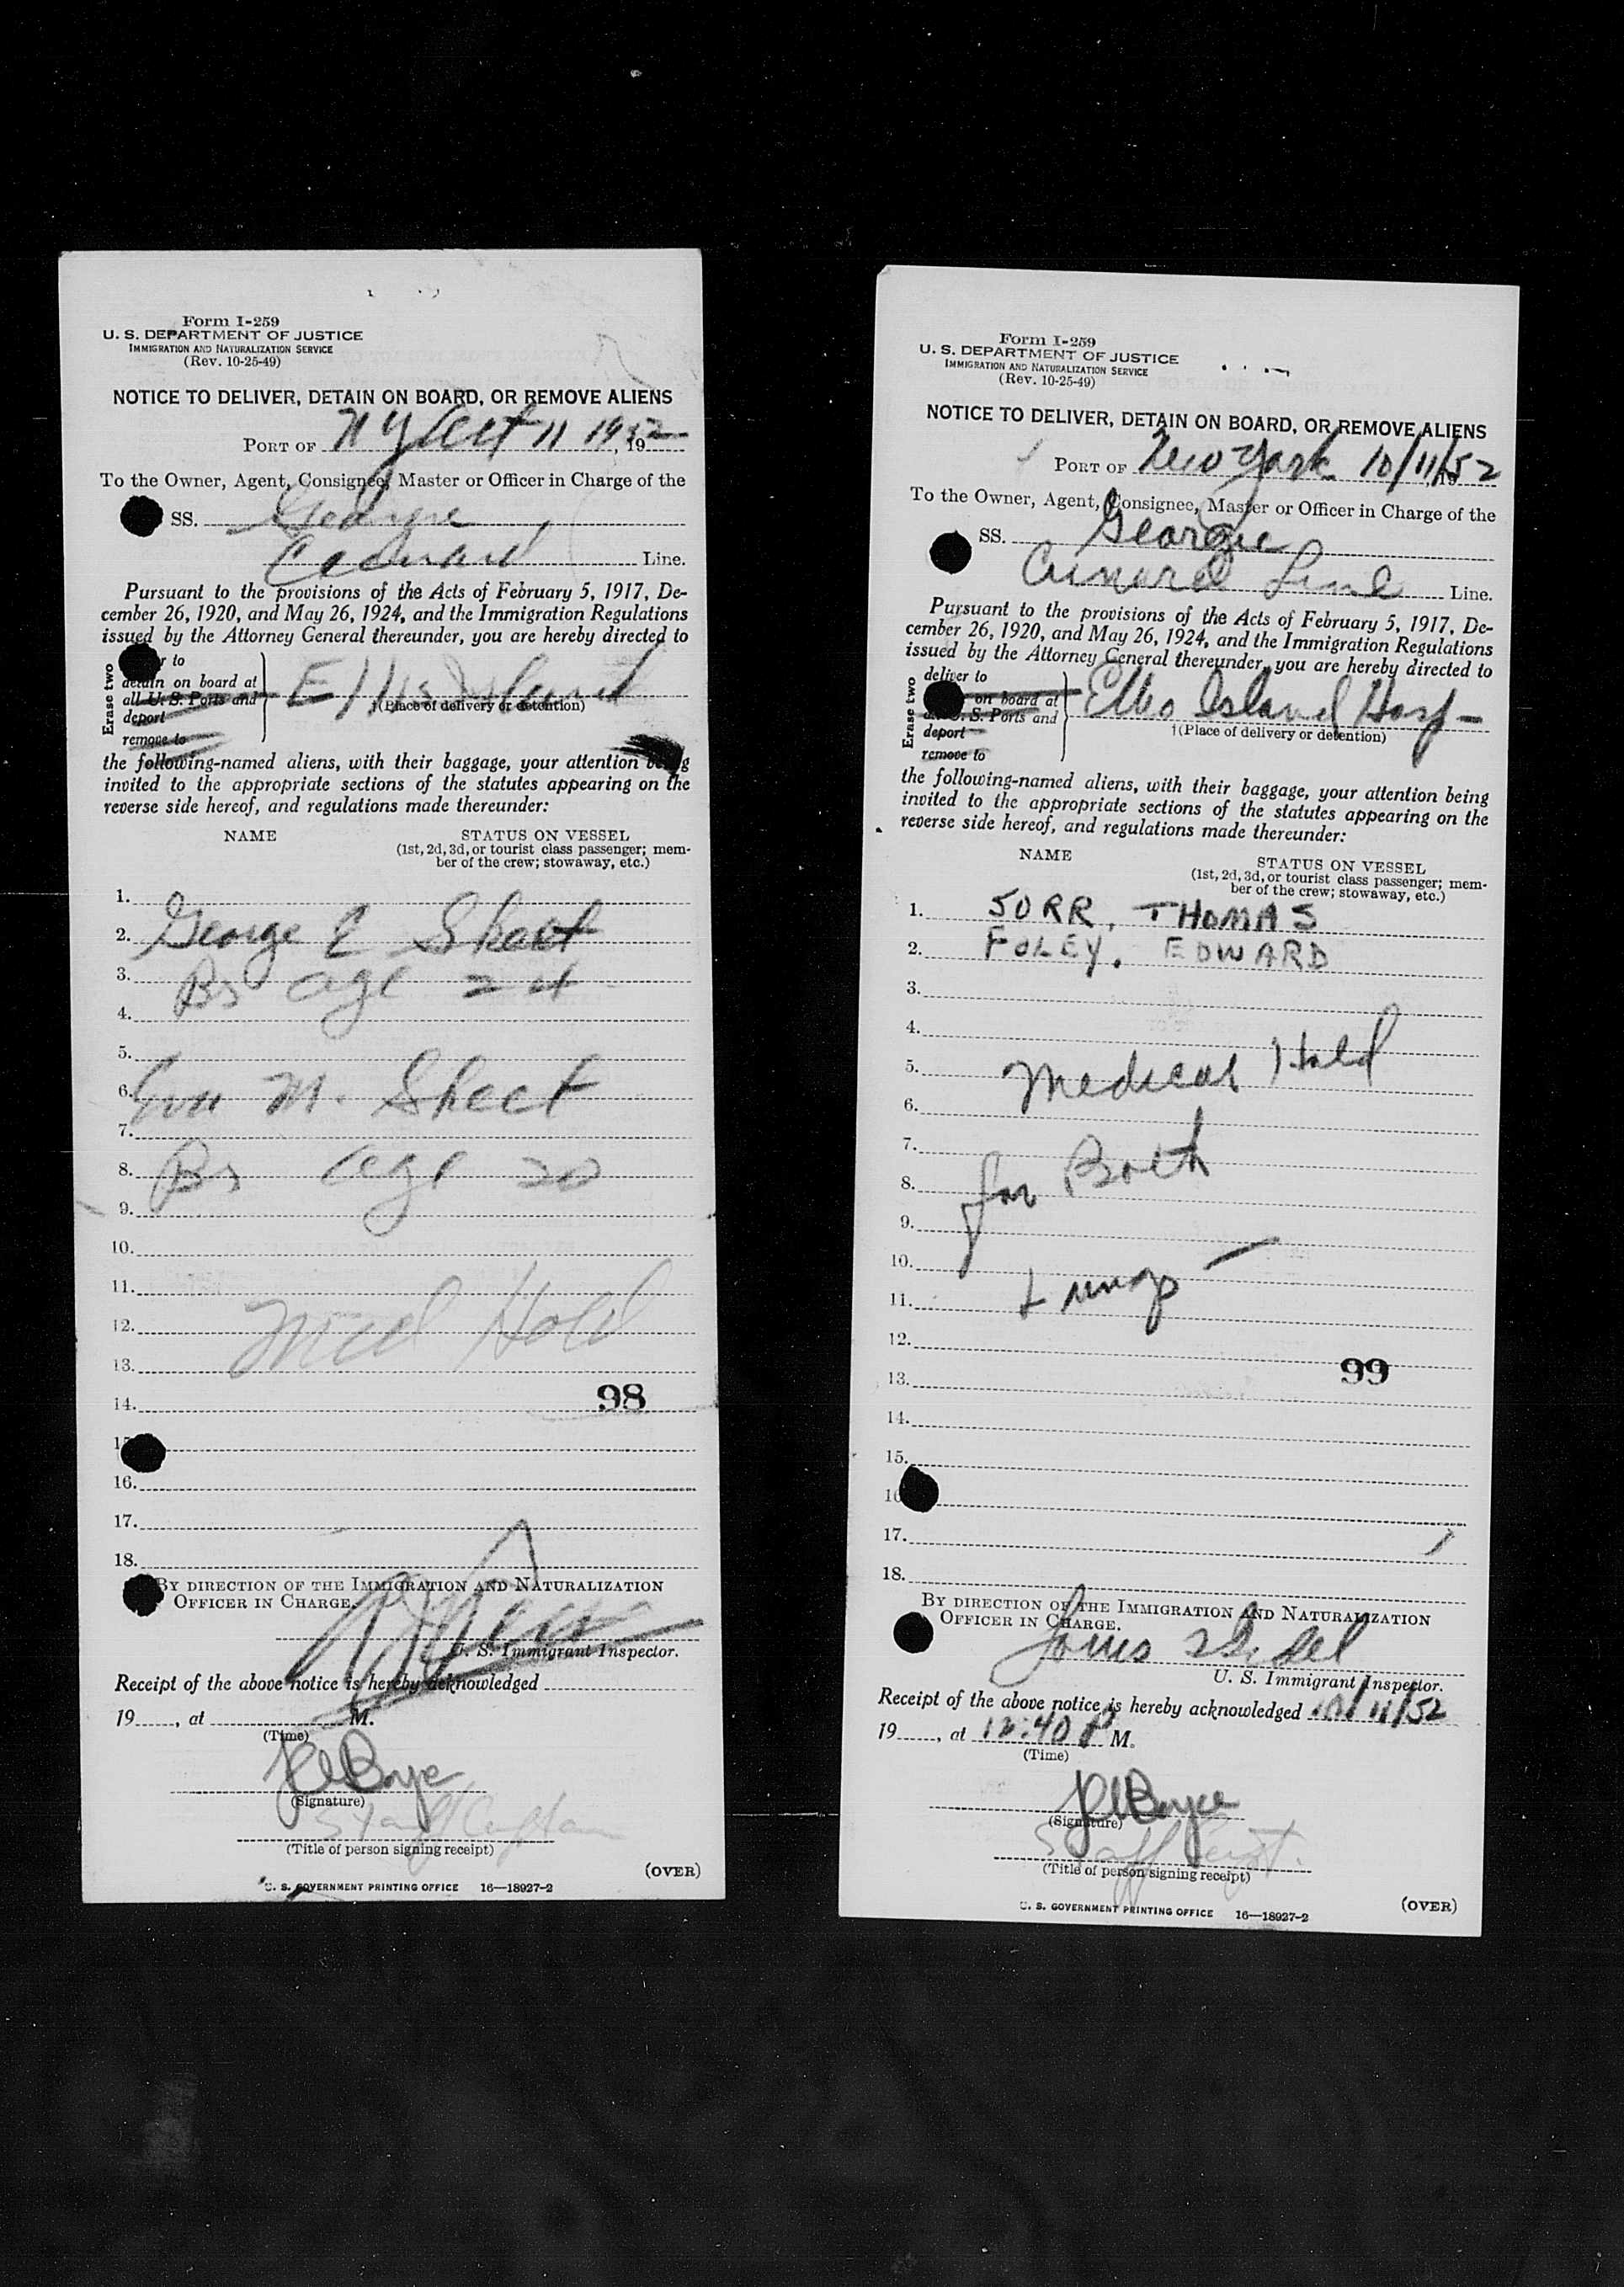 Form I-259
U. S. DEPARTMENT OF JUSTICE
IMMIGRATION AND NATURALIZATION SERVICE
(Rev. 10-25-49)
NOTICE TO DELIVER, DETAIN ON BOARD, OR REMOVE ALIENS
PORT OF N Y Oct 11 1952, 19
To the Owner, Agent, Consignee, Master or Officer in Charge of the
SS. Georgic
Cunard Line.
Pursuant to the provisions of the Acts of February 5, 1917, De-
cember 26, 1920, and May 26, 1924, and the Immigration Regulations
issued by the Attorney General thereunder, you are hereby directed to
Erase two
r to
detain on board at
all U. S. Ports and
deport
remove to
Ellis Island
†(Place of delivery or detention)
the following-named aliens, with their baggage, your attention being
invited to the appropriate sections of the statutes appearing on the
reverse side hereof, and regulations made thereunder:
NAME
STATUS ON VESSEL
(1st, 2d, 3d, or tourist class passenger; mem-
ber of the crew; stowaway, etc.)
1.
2. George E
3. Br age 24
4.
5.
6. M. Sheet
7.
8. Br age 20
9.
10.
11.
12. Med Hold
13.
14. 98
1
16.
17.
18.
BY DIRECTION OF THE IMMIGRATION AND NATURALIZATION
OFFICER IN CHARGE.
U. S. Immigrant Inspector.
Receipt of the above notice is hereby acknowledged
19, at M.
(Time)
Boyce
(Signature)
Staff Captain
(Title of person signing receipt)
(OVER)
U. S. GOVERNMENT PRINTING OFFICE 16—18927-2
Form I-259
U. S. DEPARTMENT OF JUSTICE
IMMIGRATION AND NATURALIZATION SERVICE
(Rev. 10-25-49)
NOTICE TO DELIVER, DETAIN ON BOARD, OR REMOVE ALIENS
PORT OF New York 10/11/52, 19
To the Owner, Agent, Consignee, Master or Officer in Charge of the
SS. Georgic
Cunard Line Line.
Pursuant to the provisions of the Acts of February 5, 1917, De-
cember 26, 1920, and May 26, 1924, and the Immigration Regulations
issued by the Attorney General thereunder, you are hereby directed to
Erase two
deliver to
on board at
S. Ports and
deport
remove to
Ellis Island Hosp-
†(Place of delivery or detention)
the following-named aliens, with their baggage, your attention being
invited to the appropriate sections of the statutes appearing on the
reverse side hereof, and regulations made thereunder:
NAME
STATUS ON VESSEL
(1st, 2d, 3d, or tourist class passenger; mem-
ber of the crew; stowaway, etc.)
1. SORR, THOMAS
2. FOLEY, EDWARD
3.
4.
5. Medical Hold
6.
7.
8. for Both
9.
10.
11. Lungs -
12.
13. 99
14.
15.
1
17.
18.
BY DIRECTION OF THE IMMIGRATION AND NATURALIZATION
OFFICER IN CHARGE.
Louis
U. S. Immigrant Inspector.
Receipt of the above notice is hereby acknowledged 10/11/52
19, at 12:40 P M.
(Time)
Boyce
(Signature)
Staff Capt.
(Title of person signing receipt)
(OVER)
U. S. GOVERNMENT PRINTING OFFICE 16—18927-2